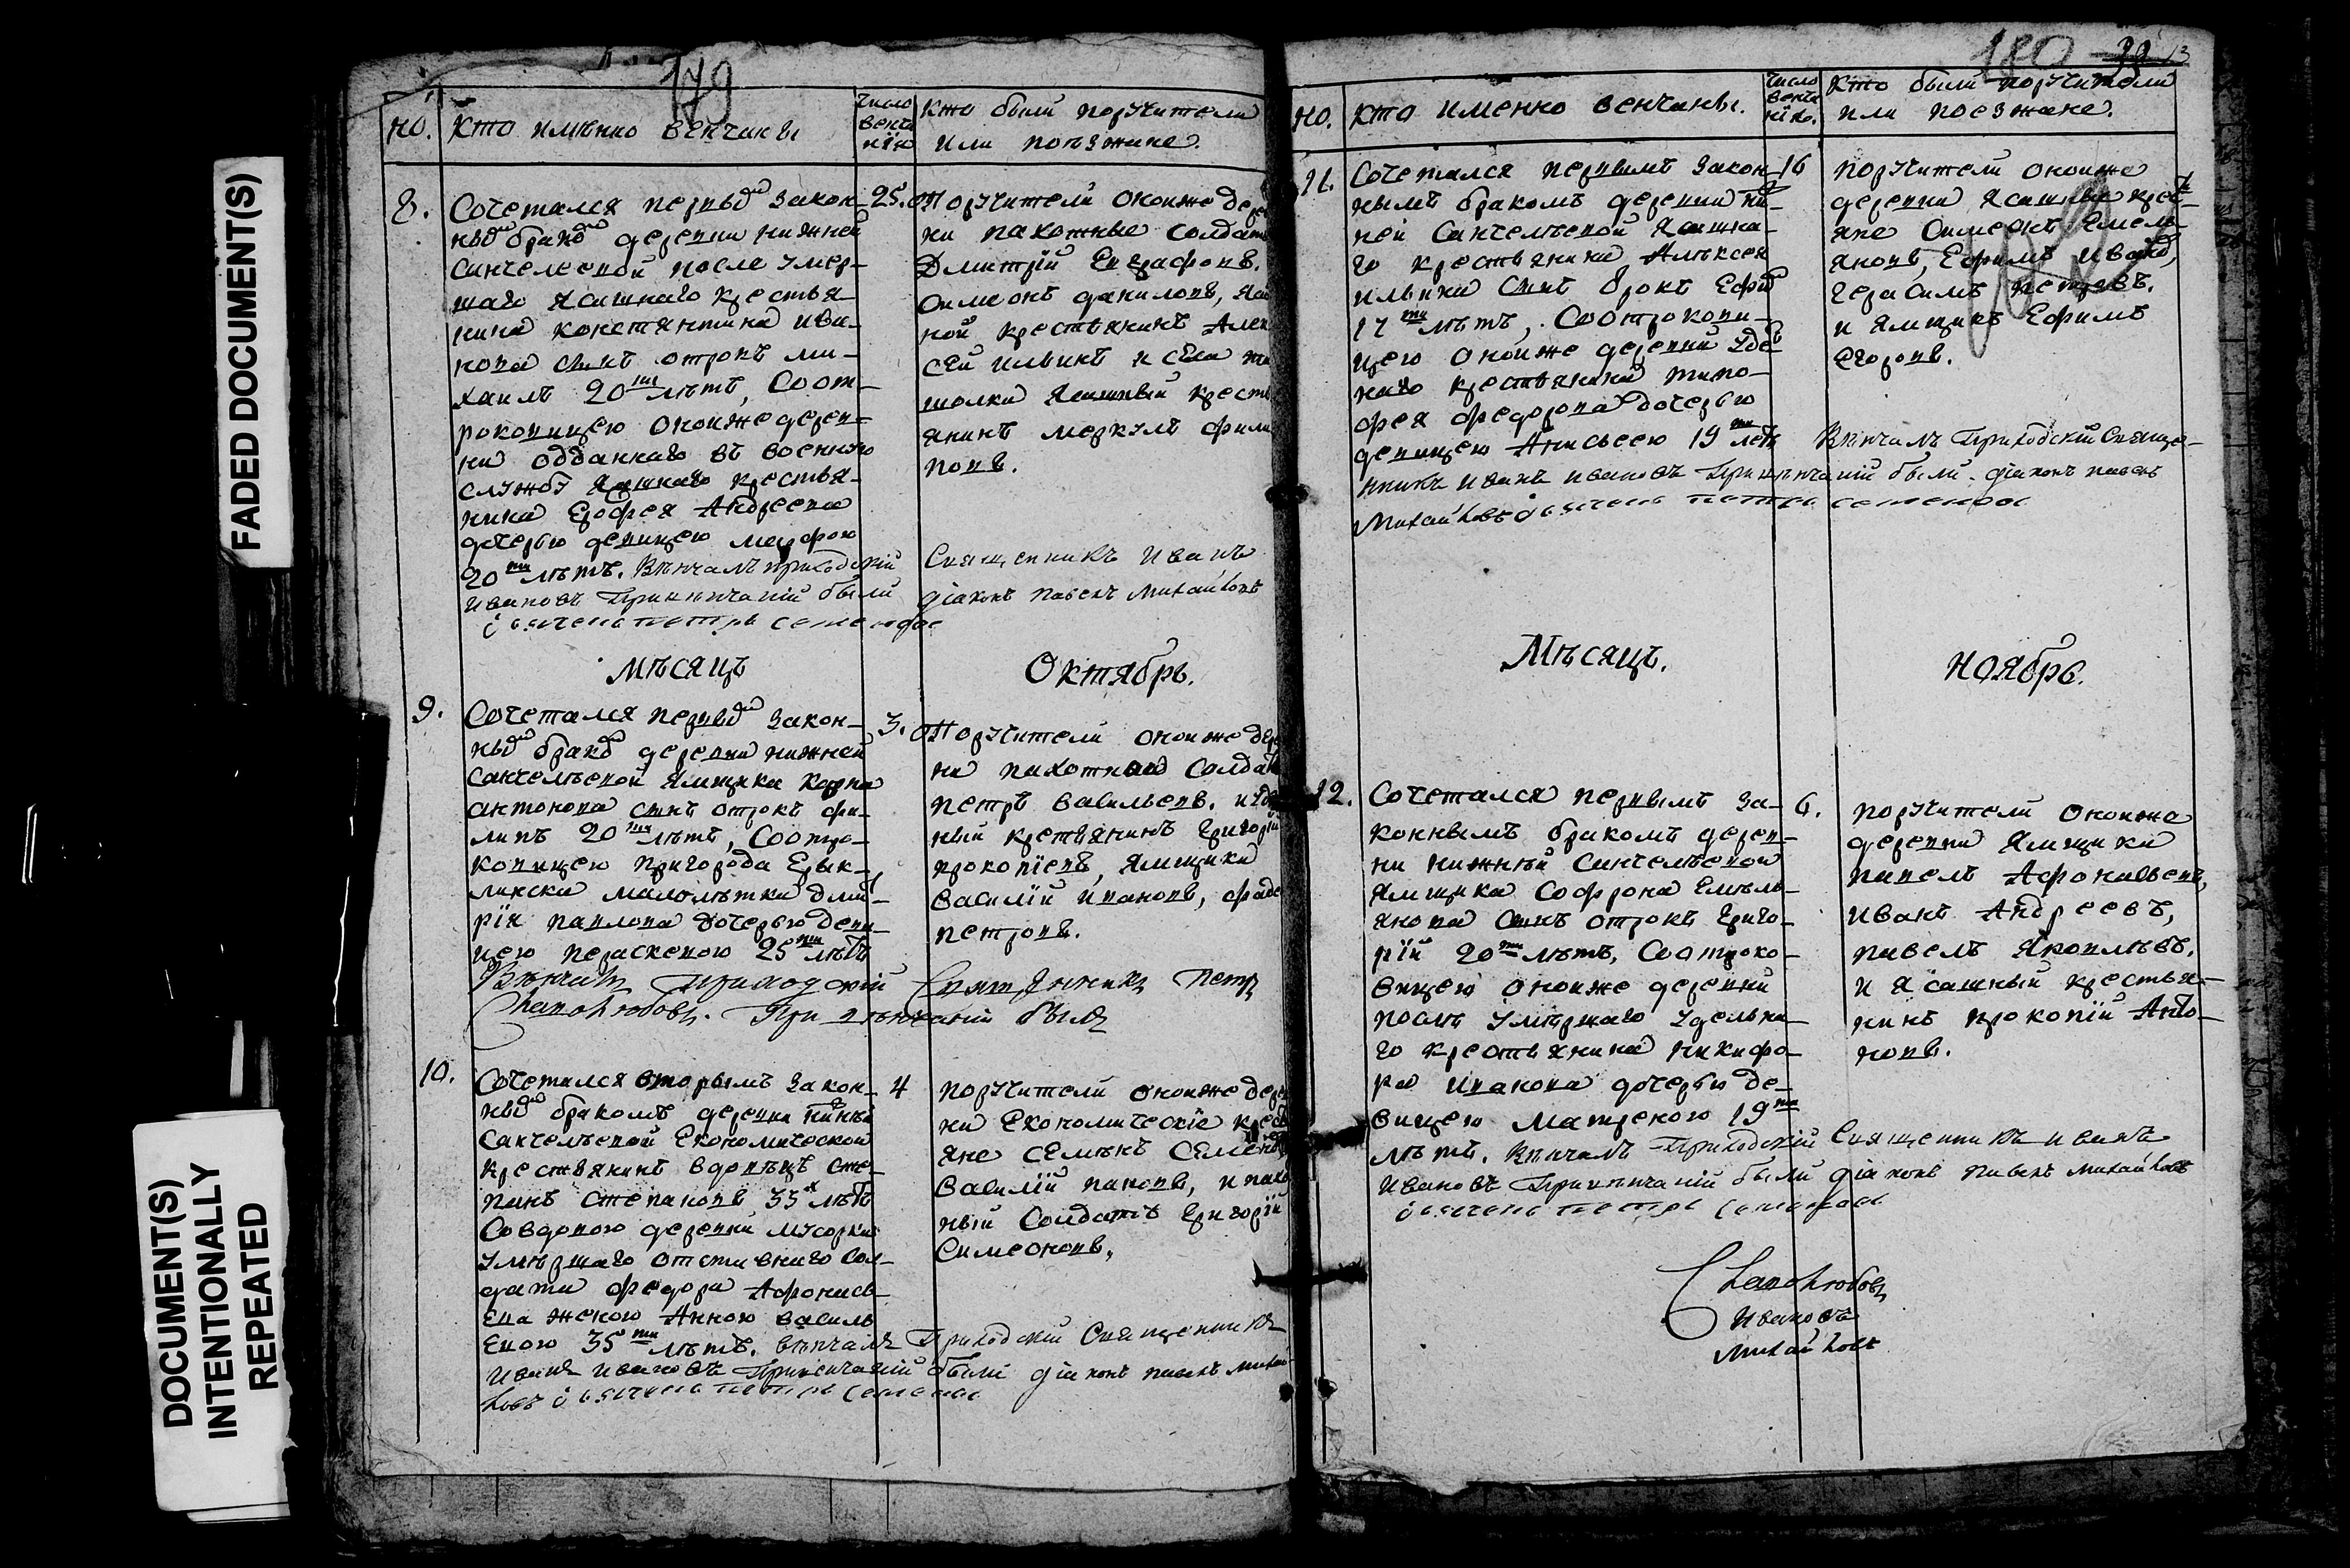 FADED DOCUMENT(S)
DOCUMENT(S)
INTENTIONALLY
REPEATED
179
но. Кто имянно венчаны
число венчанїя
Кто были поручители
или поезжане.
8. Сочетался первымъ закон-
нымъ бракомъ деревни нижней
Санчелеевой после умер-
шаго ясашнаго крестья-
нина Константина Ива-
нова сынъ отрокъ ми-
хаилъ 20ти лѣтъ, Соот-
роковицею оноиже дерев-
ни отданнаго въ военную
службу ясашнаго крестья-
нина Ерофея Андреева
дочерью девицею марфою
20ти лѣтъ. Вѣнчалъ приходскїй
Ивановъ При венчанїи были
25.
Поручители оноиже дерев
ни пахотные солдаты
Дмитрїй Евграфовъ.
Симеонъ даниловъ,
крестьянинъ Алек
сей ильинъ и села
ясашный крест
янинъ меркулъ фили
повъ.
Священникъ Иванъ
дїаконъ павелъ михайловъ
мѣсяцъ Октябрь.
9. Сочетался первымъ закон-
нымъ бракомъ деревни нижней
Санчелѣевой ямщика Карпа
антонова сынъ отрокъ фи-
липъ 20ти лѣтъ, Соотро-
ковицею пригорода Ерык-
линска малолѣтка дми-
рїя павлова дочерью деви-
цею пераскевою 25ти лѣтъ
Вѣнчалъ приходскїй Священникъ Петръ
При вѣнчанїи былъ
3.
Поручители оноиже дере
ни пахотной солдатъ
петръ васильевъ.
ный крестьянинъ григорїй
прокопїевъ, ямщики
василїй ивановъ, фаде
петровъ.
10. Сочетался вторымъ закон-
нымъ бракомъ деревни нижнѣй
Санчелѣевой Економической
крестьянинъ вдовецъ сте-
панъ степановъ 35 лѣтъ
Совдовою деревни мусорки
умершаго отставнаго сол-
дата федора Афонась-
ева женою Анною василь
евою 35ти лѣтъ. вѣнчалъ Приходскїй Священникъ
Иванъ Ивановъ При венчанїи были дїаконъ павелъ михай-
ловъ
4
поручители оноиже дерев
ни Економическїе крест
яне семѣнъ семеновъ
василїй пановъ, и пахо
ный солдатъ григорїй
Симеоновъ.
180
но. Кто именно венчаны.
число венчанїю.
Кто были поручители
или поезжане.
11. Сочетался первымъ закон-
нымъ бракомъ деревни ни-
ней Санчелѣевой ясашна-
го крестьянина Алексея
ильина сынъ отрокъ Ефимъ
17ти лѣтъ, Соотрокови-
цею оноиже деревни удел-
наго крестьянина тимо-
фея федорова дочерью
девицею Анисьею 19ти летъ Вѣнчалъ Приходскїй Священ-
никъ Иванъ Ивановъ При вѣнчанїи были дїаконъ павелъ
Михайловъ
16
поручители оноиже
деревни ясашные крест-
яне Симеонъ Емель-
яновъ, Ефимъ Ивановъ,
герасимъ петровъ.
и ямщикъ Ефимъ
Егоровъ.
Мѣсяцъ. ноябрь.
12. Сочетался первымъ за-
коннымъ бракомъ дерев-
ни нижнѣй Санчелѣевой
ямщика Софрона Емель-
янова сынъ отрокъ григо-
рїй 20ти лѣтъ, Соотроко-
вицею оноиже деревни
послѣ умѣршаго удельна-
го крестьянина никифо-
ра иванова дочерью де-
вицею матреною 19ти
лѣтъ. Вѣнчалъ Приходскїй Священникъ Иванъ
Ивановъ При венчанїи были дїаконъ павелъ михайловъ
6.
поручители оноиже
деревни ямщики
павелъ Афонасьевъ,
иванъ Андреевъ,
павелъ яковлѣвъ.
и ясашный крестья-
нинъ прокопїй Анто-
новъ.
Ивановъ
Михайловъ